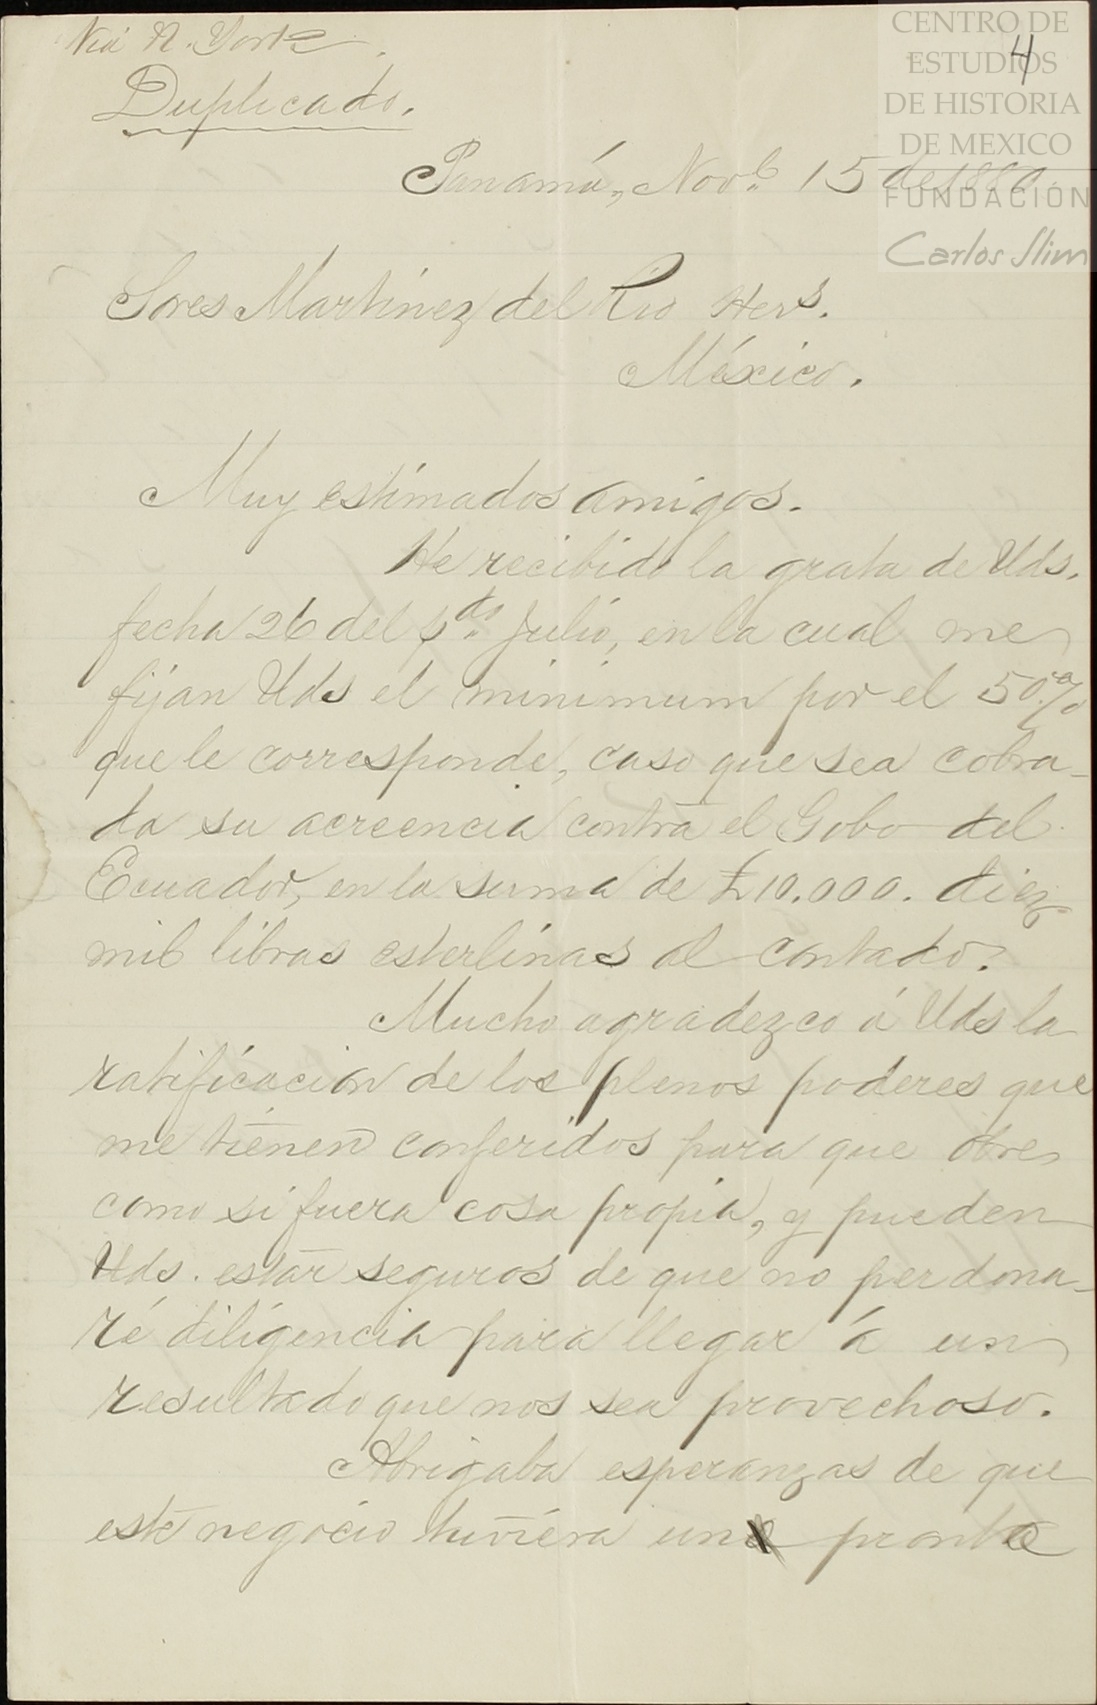 Via N. York.
Duplicado.
CENTRO DE
ESTUDIOS
DE HISTORIA
DE MEXICO
FUNDACIÓN
Carlos Slim
4
Panamá, Nov.e 15 de 1880.
Sores Martínez del Rio Her.s
México.
Muy estimados amigos.
He recibido la grata de Uds.
fecha 26 del p.do Julio, en la cual me
fijan Uds el minimum por el 50%
que le corresponde, caso que sea cobra-
da su acreencia contra el Gobo del
Ecuador, en la suma de £10.000. diez
mil libras esterlinas al contado.
Mucho agradezco á Uds la
ratificacion de los plenos poderes que
me tienen conferidos para que obre
como si fuera cosa propia, y pueden
Uds. estar seguros de que no perdona-
ré diligencia para llegar á un
resultado que nos sea provechoso.
Abrigaba esperanzas de que
este negocio tuviera un pronto